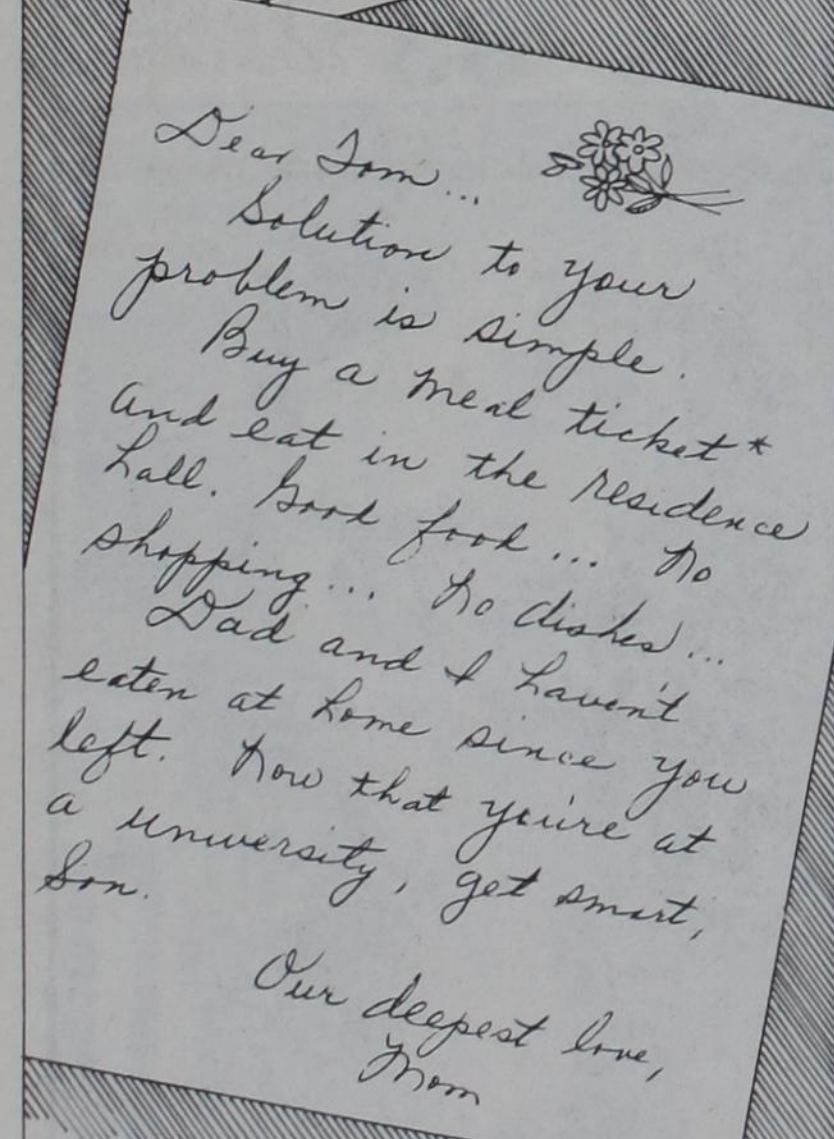 Dear Tom...
Solution to your
problem is simple.
Buy a meal ticket*
and eat in the residence
hall. Good food... No
shopping... No dishes...
Dad and I haven't
eaten at home since you
left. Now that you're at
a university, get smart,
Son.
Our deepest love,
Mom